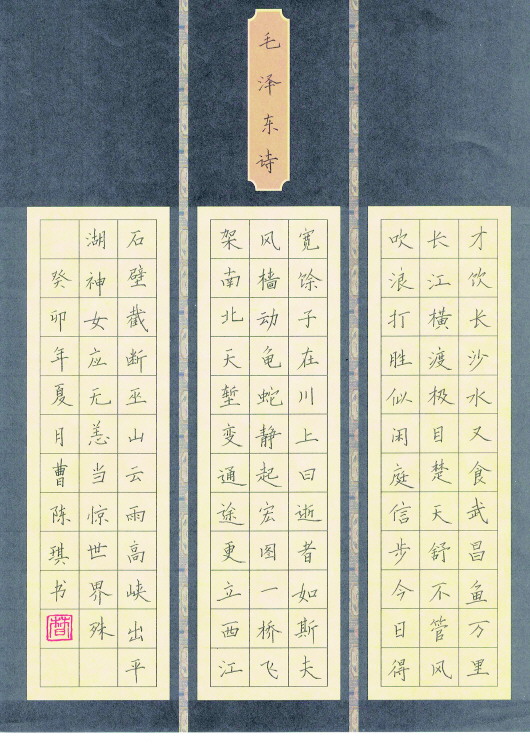 毛泽东诗
才饮长沙水又食武昌鱼万里
长江横渡极目楚天舒不管风
吹浪打胜似闲庭信步今日得
宽馀子在川上曰逝者如斯夫
风樯动龟蛇静起宏图一桥飞
架南北天堑变通途更立西江
石壁截断巫山云雨高峡出平
湖神女应无恙当惊世界殊
癸卯年夏月曹陈琪书